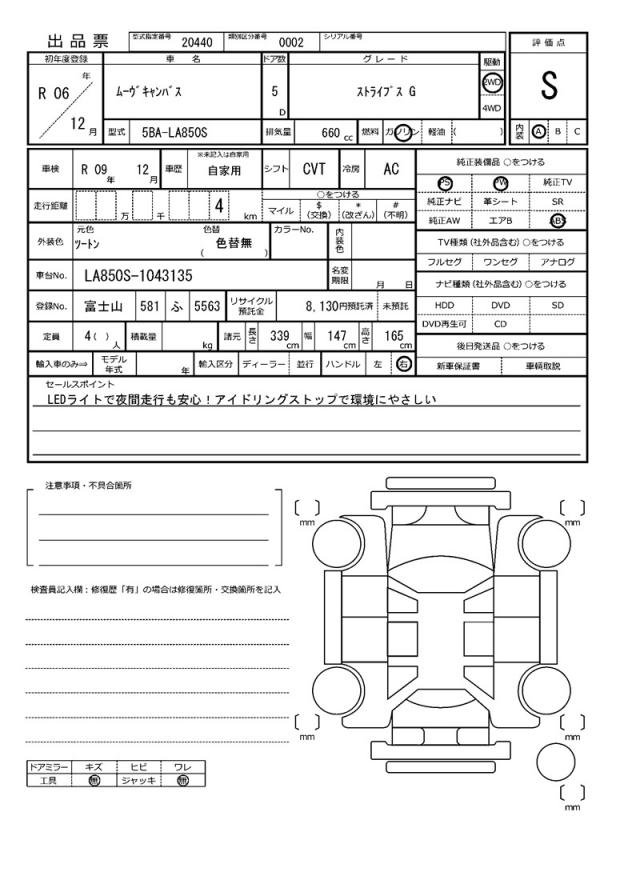 出品票 型式指定番号 20440 類別区分番号 0002 シリアル番号
評価点
S
内装 A B C
初年度登録 車名 ドア数 グレード 駆動
R 06 年 12 月 ムーヴキャンバス 5 D ストライプス G 2WD 4WD
型式 5BA-LA850S 排気量 660 cc 燃料 ガソリン 軽油 ( )
車検 R 09 年 12 月 車歴 ※未記入は自家用 自家用 シフト CVT 冷房 AC
走行距離 万 千 4 km ○をつける
マイル $ (交換) * (改ざん) # (不明)
外装色 元色 ツートン 色替 ( 色替無 ) カラーNo. 内装色
車台No. LA850S-1043135 名変期限 月 日
登録No. 富士山 581 ふ 5563 リサイクル預託金 8,130円預託済 未預託
定員 4( ) 人 積載量 kg 諸元 長さ 339 cm 幅 147 cm 高さ 165 cm
輸入車のみ⇒ モデル年式 年 輸入区分 ディーラー 並行 ハンドル 左 右
純正装備品 ○をつける
PS PW 純正TV
純正ナビ 革シート SR
純正AW エアB ABS
TV種類 (社外品含む) ○をつける
フルセグ ワンセグ アナログ
ナビ種類 (社外品含む) ○をつける
HDD DVD SD
DVD再生可 CD
後日発送品 ○をつける
新車保証書 車輌取説
セールスポイント
LEDライトで夜間走行も安心！アイドリングストップで環境にやさしい
注意事項・不具合箇所
検査員記入欄：修復歴「有」の場合は修復箇所・交換箇所を記入
ドアミラー キズ ヒビ ワレ
工具 無 ジャッキ 無
mm
mm
mm
mm
mm